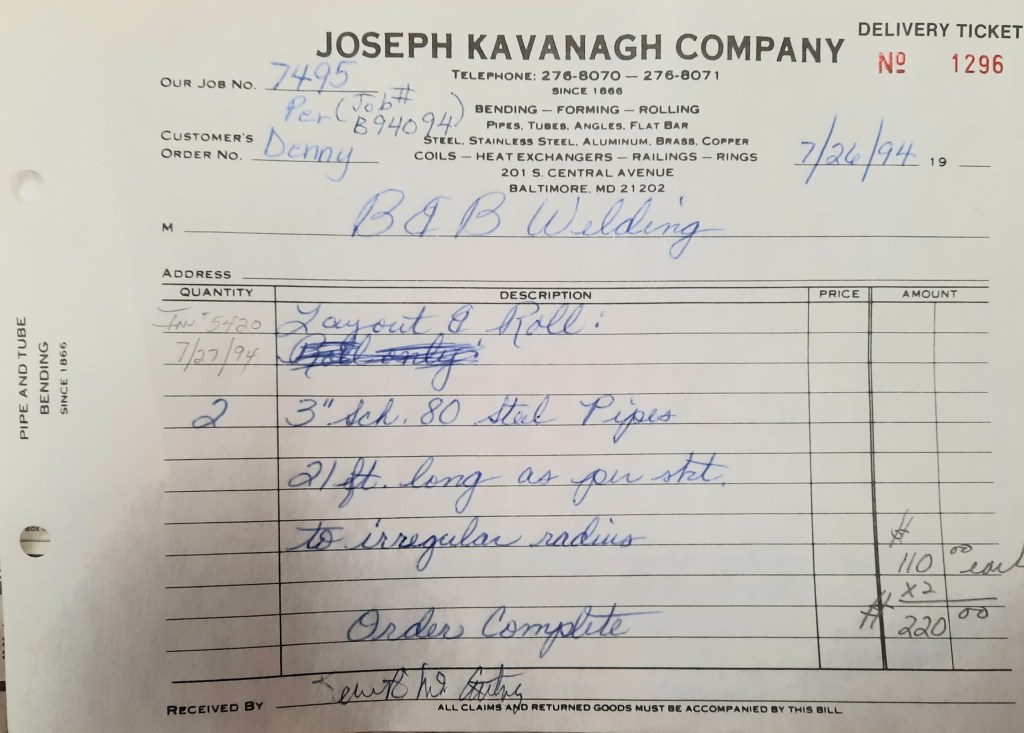 DELIVERY TICKET
JOSEPH KAVANAGH COMPANY
Nº 1296
TELEPHONE: 276-8070 — 276-8071
SINCE 1866
OUR JOB NO. 7495
Per (Job# B94094)
BENDING — FORMING — ROLLING
PIPES, TUBES, ANGLES, FLAT BAR
CUSTOMER'S ORDER NO. Denny
STEEL, STAINLESS STEEL, ALUMINUM, BRASS, COPPER
COILS — HEAT EXCHANGERS — RAILINGS — RINGS
7/26/94 19
201 S. CENTRAL AVENUE
BALTIMORE, MD 21202
M B & B Welding
ADDRESS
QUANTITY DESCRIPTION PRICE AMOUNT
Inv# 5420 Layout & Roll:
7/27/94 Roll only:
2 3" Sch. 80 Steel Pipes
21 ft. long as per skt.
to irregular radius
$ 110 00 each
x2
Order Complete $ 220 00
RECEIVED BY
ALL CLAIMS AND RETURNED GOODS MUST BE ACCOMPANIED BY THIS BILL
PIPE AND TUBE
BENDING
SINCE 1866